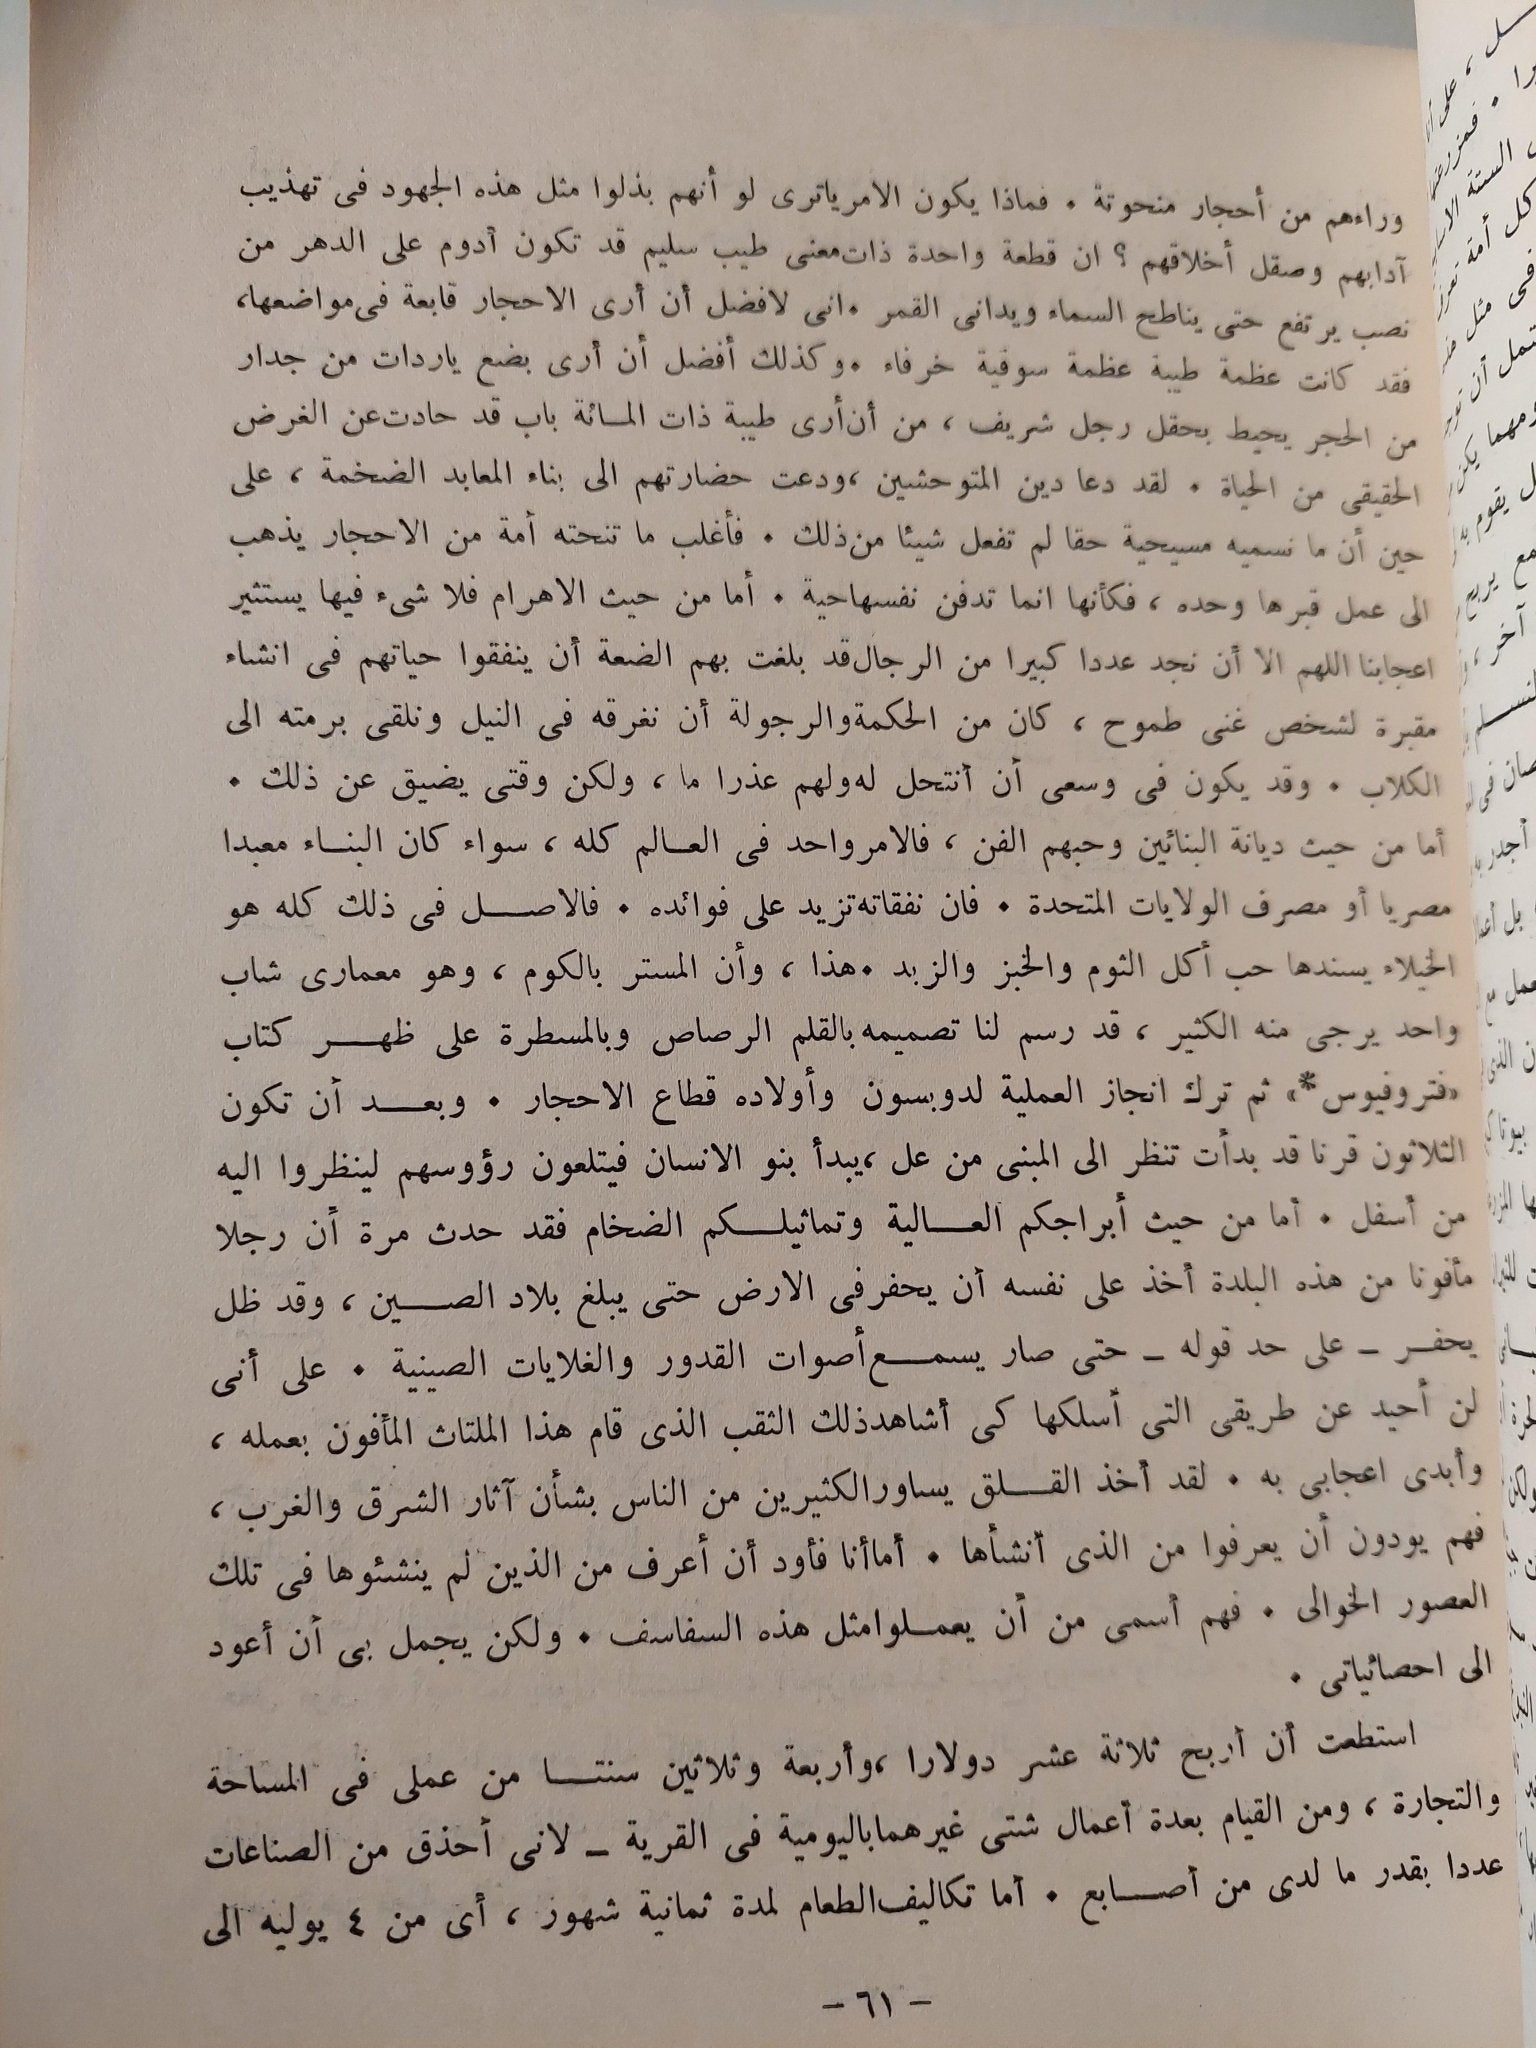 وراءهم من أحجار منحوتة . فماذا يكون الامر ياترى لو أنهم بذلوا مثل هذه الجهود فى تهذيب
آدابهم وصقل أخلاقهم ؟ ان قطعة واحدة ذات معنى طيب سليم قد تكون أدوم على الدهر من
نصب يرتفع حتى يناطح السماء ويدانى القمر . انى لافضل أن أرى الاحجار قابعة فى مواضعها،
فقد كانت عظمة طيبة عظمة سوقية خرفاء . وكذلك أفضل أن أرى بضع ياردات من جدار
من الحجر يحيط بحقل رجل شريف ، من أن أرى طيبة ذات المائة باب قد حادت عن الغرض
الحقيقى من الحياة . لقد دعا دين المتوحشين ، ودعت حضارتهم الى بناء المعابد الضخمة ، على
حين أن ما نسميه مسيحية حقا لم تفعل شيئا من ذلك . فأغلب ما تنحته أمة من الاحجار يذهب
الى عمل قبرها وحده ، فكأنها انما تدفن نفسها حية . أما من حيث الاهرام فلا شىء فيها يستثير
اعجابنا اللهم الا أن نجد عددا كبيرا من الرجال قد بلغت بهم الضعة أن ينفقوا حياتهم فى انشاء
مقبرة لشخص غنى طموح ، كان من الحكمة والرجولة أن نغرقه فى النيل ونلقى برمته الى
الكلاب . وقد يكون فى وسعى أن أنتحل له ولهم عذرا ما ، ولكن وقتى يضيق عن ذلك .
أما من حيث ديانة البنائين وحبهم الفن ، فالامر واحد فى العالم كله ، سواء كان البناء معبدا
مصريا أو مصرف الولايات المتحدة . فان نفقاته تزيد على فوائده . فالاصل فى ذلك كله هو
الخيلاء يسندها حب أكل الثوم والخبز والزبد . هذا ، وأن المستر بالكوم ، وهو معمارى شاب
واحد يرجى منه الكثير ، قد رسم لنا تصميمه بالقلم الرصاص وبالمسطرة على ظهر كتاب
«فتروفيوس*» ثم ترك انجاز العملية لدوبسون وأولاده قطاع الاحجار . وبعد أن تكون
الثلاثون قرنا قد بدأت تنظر الى المبنى من عل ، يبدأ بنو الانسان فيتلعون رؤوسهم لينظروا اليه
من أسفل . أما من حيث أبراجكم العالية وتماثيلكم الضخام فقد حدث مرة أن رجلا
مأفونا من هذه البلدة أخذ على نفسه أن يحفر فى الارض حتى يبلغ بلاد الصين ، وقد ظل
يحفر – على حد قوله – حتى صار يسمع أصوات القدور والغلايات الصينية . على أنى
لن أحيد عن طريقى التى أسلكها كى أشاهد ذلك الثقب الذى قام هذا الملتاث المأفون بعمله ،
وأبدى اعجابى به . لقد أخذ القلق يساور الكثيرين من الناس بشأن آثار الشرق والغرب ،
فهم يودون أن يعرفوا من الذى أنشأها . أما أنا فأود أن أعرف من الذين لم ينشئوها فى تلك
العصور الخوالى . فهم أسمى من أن يعملوا مثل هذه السفاسف . ولكن يجمل بى أن أعود
الى احصائياتى .
استطعت أن أربح ثلاثة عشر دولارا ، وأربعة وثلاثين سنتا من عملى فى المساحة
والتجارة ، ومن القيام بعدة أعمال شتى غيرهما باليومية فى القرية – لانى أحذق من الصناعات
عددا بقدر ما لدى من أصابع . أما تكاليف الطعام لمدة ثمانية شهور ، أى من ٤ يوليه الى
– ٦١ –